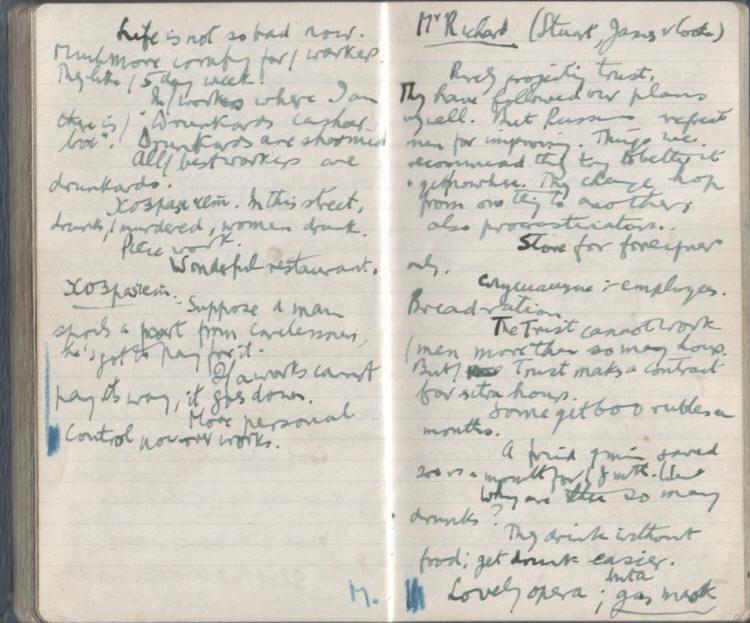 Life is not so bad now.
Much more comfy for / worker.
They like / 5 day week.
In / works where I am
there is / "Drunkards cashier
box". Drunkards are shamed
All / best workers are
drunkards.
Хозрасчет. In this street,
drunks, 1 murdered, women drunk.
Piece work.
Wonderful restaurant.
Хозрасчет.
Suppose a man
spoils a part from carelessness,
he's got to pay for it.
If a works cannot
pay its way, it goes down.
More personal
control now over works.
M.
Mr Richard (Stuart, James & Cooke)
Purely projecting trust.
They have followed our plans
well. But Russians respect
men for improving. Things we
recommend they try to better it
get nowhere. They change, hop
from one thing to another;
also procrastinators.
Store for foreigners
only.
служащие :- employees.
Bread ration
The Trust cannot work
/ men more than so many hours.
But / Trust makes a contract
for extra hours.
Some get 600 rubles a
months.
A friend of mine saved
a month for
Why are so many
drunks?
They drink without
food; get drunk easier.
Lovely opera; but a
gas mask